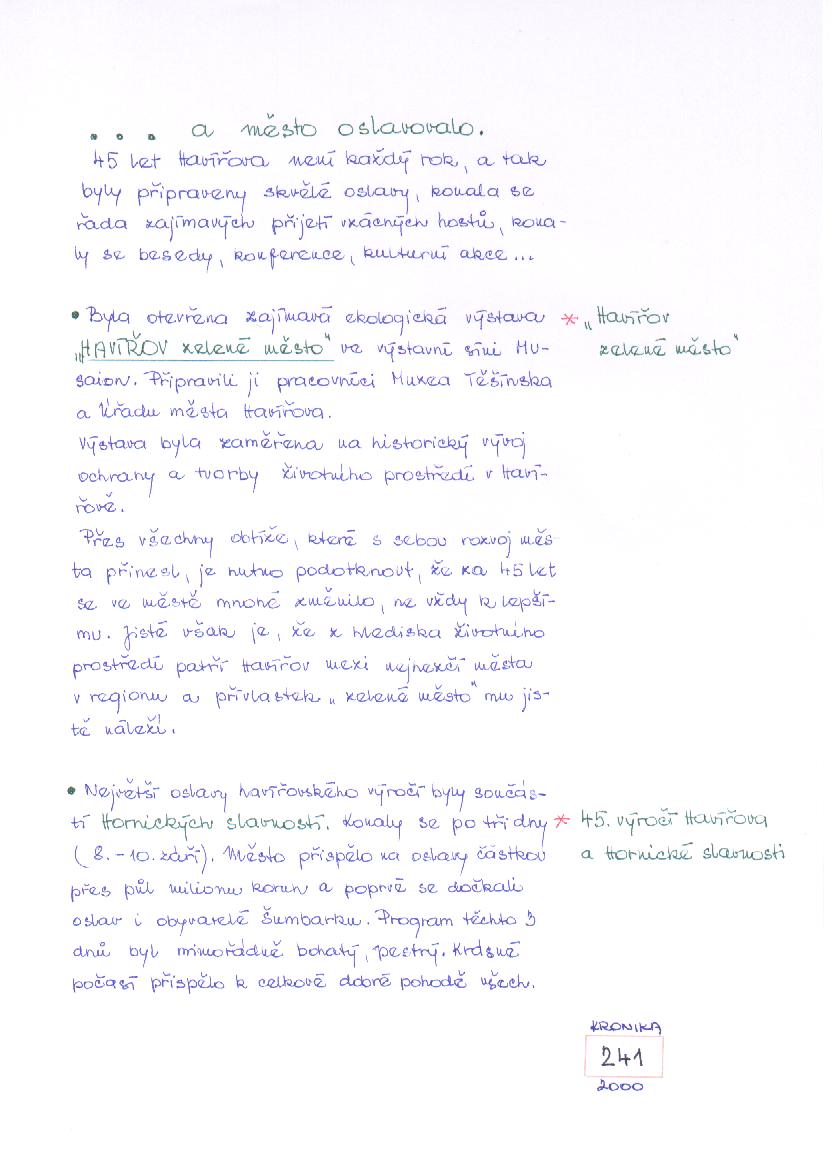 ... a město oslavovalo.
45 let Havířova není každý rok, a tak
byly připraveny skvělé oslavy, konala se
řada zajímavých přijetí vzácných hostů, kona-
ly se besedy, konference, kulturní akce...
• Byla otevřena zajímavá ekologická výstava
„HAVÍŘOV zelené město" ve výstavní síni Mu-
saion. Připravili ji pracovníci Muzea Těšínska
a Úřadu města Havířova.
Výstava byla zaměřena na historický vývoj
ochrany a tvorby životního prostředí v Haví-
řově.
Přes všechny obtíže, které s sebou rozvoj měs-
ta přinesl, je nutno podotknout, že za 45 let
se ve městě mnohé změnilo, ne vždy k lepší-
mu. Jisté však je, že z hlediska životního
prostředí patří Havířov mezi nejhezčí města
v regionu a přívlastek „zelené město" mu jis-
tě náleží.
* „Havířov
zelené město"
• Největší oslavy havířovského výročí byly součás-
tí Hornických slavností. Konaly se po tři dny
(8. - 10. září). Město přispělo na oslavy částkou
přes půl milionu korun a poprvé se dočkali
oslav i obyvatelé Šumbarku. Program těchto 3
dnů byl mimořádně bohatý, pestrý. Krásné
počasí přispělo k celkové dobré pohodě všech.
* 45. výročí Havířova
a Hornické slavnosti
KRONIKA
241
2000